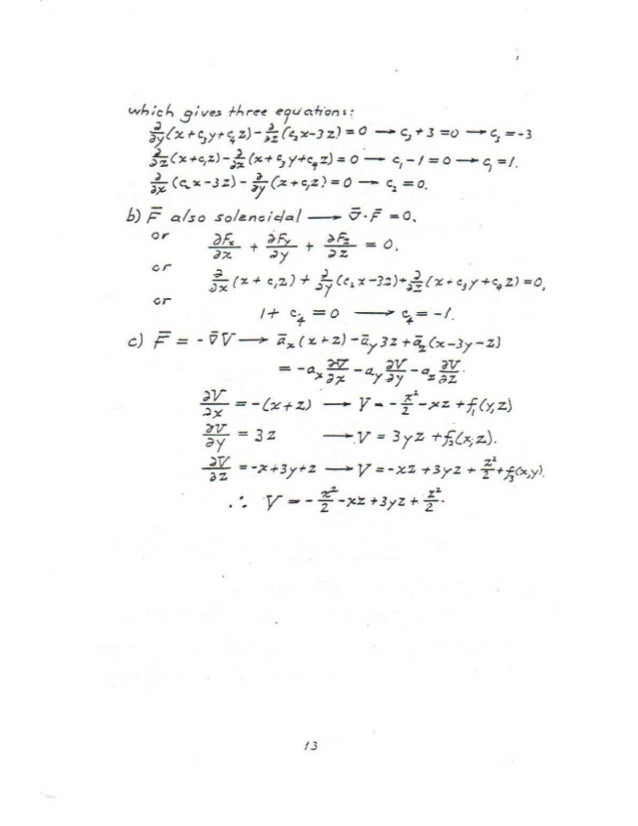 which gives three equations:
∂/∂y(x+c₃y+c₄z)-∂/∂z(c₂x-3z)=0 → c₃+3=0 → c₃=-3
∂/∂z(x+c₁z)-∂/∂x(x+c₃y+c₄z)=0 → c₁-1=0 → c₁=1.
∂/∂x(c₂x-3z)-∂/∂y(x+c₁z)=0 → c₂=0.
b) F̄ also solenoidal → ∇̄·F̄=0.
or ∂Fₓ/∂x + ∂Fᵧ/∂y + ∂F_z/∂z = 0.
or ∂/∂x(x+c₁z)+∂/∂y(c₂x-3z)+∂/∂z(x+c₃y+c₄z)=0,
or 1+c₄=0 → c₄=-1.
c) F̄=-∇̄V → āₓ(x+z)-āᵧ3z+ā_z(x-3y-z)
=-aₓ∂V/∂x-aᵧ∂V/∂y-a_z∂V/∂z.
∂V/∂x=-(x+z) → V=-x²/2-xz+f₁(y,z)
∂V/∂y=3z → V=3yz+f₂(x,z).
∂V/∂z=-x+3y+z → V=-xz+3yz+z²/2+f₃(x,y).
∴ V=-x²/2-xz+3yz+z²/2.
13